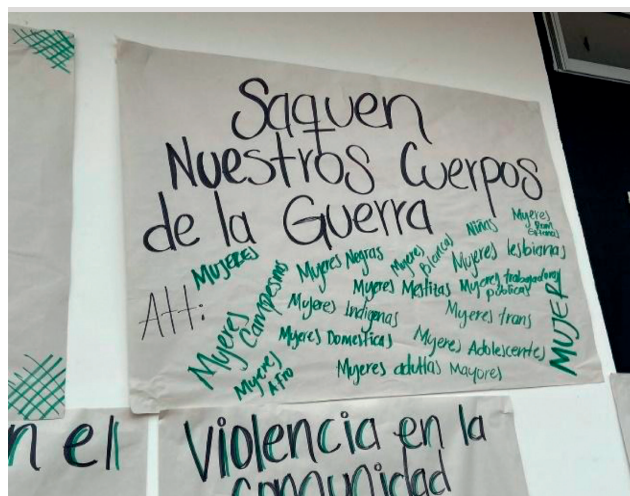 Saquen
Nuestros Cuerpos
de la Guerra
Att:
MUJERES
Mujeres Campesinas
Mujeres Negras
Mujeres Blancas
Niñas
Mujeres
Mujeres lesbianas
Mujeres Mestitas
Mujeres trabajadoras públicas
Mujeres Indigenas
Mujeres trans
MUJER
Mujeres Domesticas
Mujeres Adolescentes
Mujeres Afro
Mujeres adultas Mayores
n el
Violencia en la
comunidad